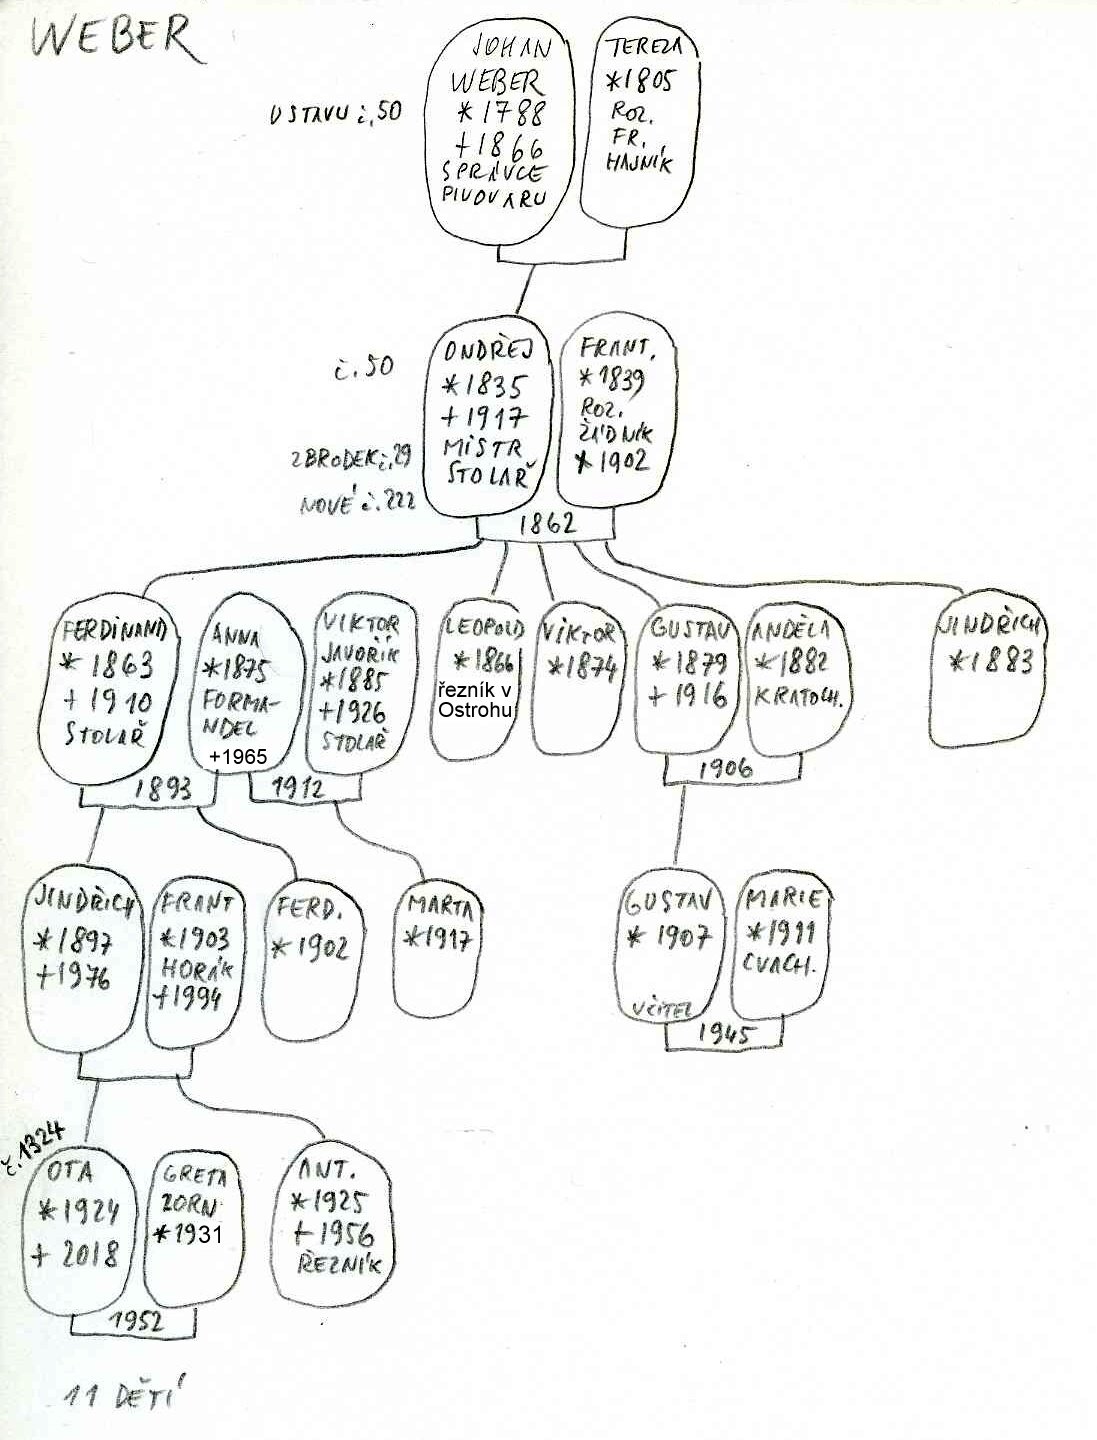 WEBER
JOHAN
WEBER
*1788
+1866
SPRÁVCE
PIVOVARU
TEREZA
*1805
ROZ.
FR.
HAJNÍK
U STAVU č.50
č.50
ZBRODEK č.29
NOVÉ č.222
ONDŘEJ
*1835
+1917
MISTR
STOLAŘ
FRANT.
*1839
ROZ.
ŽÁDNÍK
*1902
1862
FERDINAND
*1863
+1910
STOLAŘ
ANNA
*1875
FORMA-
NDEL
+1965
VIKTOR
JAVOŘÍK
*1885
+1926
STOLAŘ
LEOPOLD
*1866
řezník v
Ostrohu
VIKTOR
*1874
GUSTAV
*1879
+1916
ANDĚLA
*1882
KRATOCH.
JINDŘICH
*1883
1893
1912
1906
JINDŘICH
*1897
+1976
FRANT
*1903
HORÁK
+1994
FERD.
*1902
MARTA
*1917
GUSTAV
*1907
UČITEL
MARIE
*1911
CVACH.
1945
č.1324
OTA
*1924
+2018
GRETA
ZORN
*1931
ANT.
*1925
+1956
ŘEZNÍK
1952
11 DĚTÍ